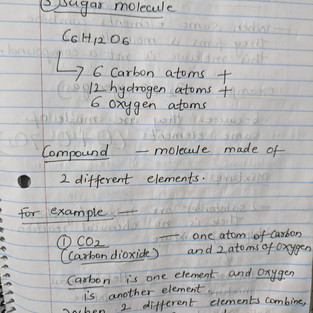 ③ Sugar molecule
C6H12O6
↳ 6 Carbon atoms +
12 hydrogen atoms +
6 oxygen atoms
Compound — molecule made of
2 different elements.
For example —
① CO2 — one atom of Carbon
(Carbon dioxide) and 2 atoms of Oxygen
Carbon is one element and Oxygen
is another element.
When 2 different elements combine,